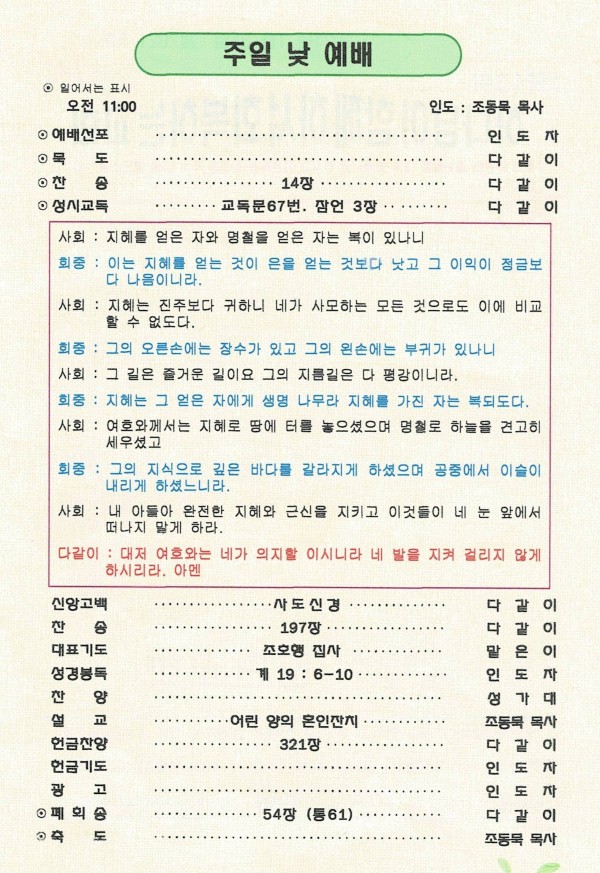 주일 낮 예배
⊙ 일어서는 표시
오전 11:00 인도 : 조동묵 목사
⊙ 예배선포 인 도 자
⊙ 묵 도 다 같 이
⊙ 찬 송 14장 다 같 이
⊙ 성시교독 교독문67번. 잠언 3장 다 같 이
사회 : 지혜를 얻은 자와 명철을 얻은 자는 복이 있나니
회중 : 이는 지혜를 얻는 것이 은을 얻는 것보다 낫고 그 이익이 정금보
다 나음이니라.
사회 : 지혜는 진주보다 귀하니 네가 사모하는 모든 것으로도 이에 비교
할 수 없도다.
회중 : 그의 오른손에는 장수가 있고 그의 왼손에는 부귀가 있나니
사회 : 그 길은 즐거운 길이요 그의 지름길은 다 평강이니라.
회중 : 지혜는 그 얻은 자에게 생명 나무라 지혜를 가진 자는 복되도다.
사회 : 여호와께서는 지혜로 땅에 터를 놓으셨으며 명철로 하늘을 견고히
세우셨고
회중 : 그의 지식으로 깊은 바다를 갈라지게 하셨으며 공중에서 이슬이
내리게 하셨느니라.
사회 : 내 아들아 완전한 지혜와 근신을 지키고 이것들이 네 눈 앞에서
떠나지 말게 하라.
다같이 : 대저 여호와는 네가 의지할 이시니라 네 발을 지켜 걸리지 않게
하시리라. 아멘
신앙고백 사도신경 다 같 이
찬 송 197장 다 같 이
대표기도 조호행 집사 맡 은 이
성경봉독 계 19 : 6-10 인 도 자
찬 양 성 가 대
설 교 어린 양의 혼인잔치 조동묵 목사
헌금찬양 321장 다 같 이
헌금기도 인 도 자
광 고 인 도 자
⊙ 폐 회 송 54장 (통61) 다 같 이
⊙ 축 도 조동묵 목사